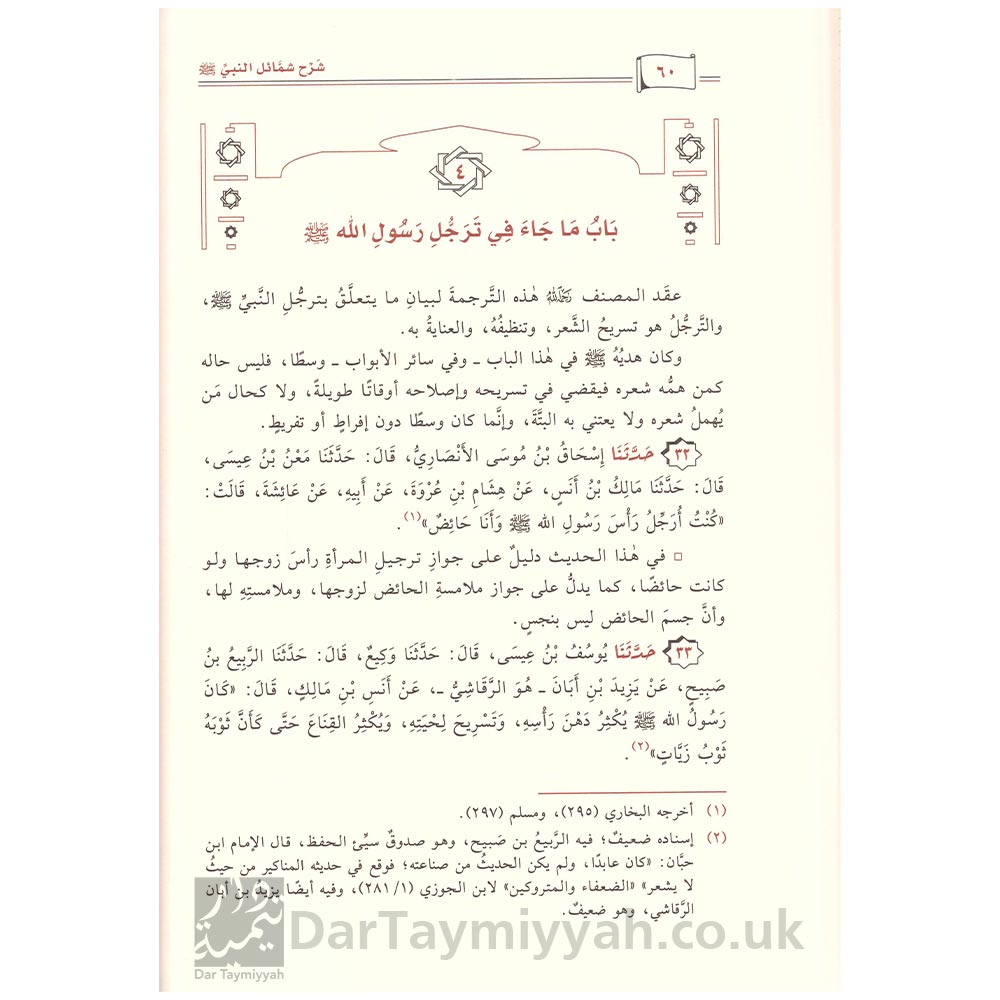 شَرْح شمَائل النبيِّ ﷺ
٦٠
٤
بَابُ مَا جَاءَ فِي تَرَجُّلِ رَسُولِ اللَّه ﷺ
عقَد المصنف رَحِمَهُ اللَّهُ هٰذه التَّرجمةَ لبيانِ ما يتعلَّقُ بترجُّلِ النَّبيِّ ﷺ،
والتَّرجُّلُ هو تسريحُ الشَّعر، وتنظيفُهُ، والعنايةُ به.
وكان هديُهُ ﷺ في هٰذا الباب ـ وفي سائر الأبواب ـ وسطًا، فليس حاله
كمن همُّه شعره فيقضي في تسريحه وإصلاحه أوقاتًا طويلةً، ولا كحال مَن
يُهملُ شعره ولا يعتني به البتَّةَ، وإنَّما كان وسطًا دون إفراطٍ أو تفريطٍ.
٣٢ حَدَّثَنَا إِسْحَاقُ بْنُ مُوسَى الأَنْصَارِيُّ، قَالَ: حَدَّثَنَا مَعْنُ بْنُ عِيسَى،
قَالَ: حَدَّثَنَا مَالِكُ بْنُ أَنَسٍ، عَنْ هِشَامِ بْنِ عُرْوَةَ، عَنْ أَبِيهِ، عَنْ عَائِشَةَ، قَالَتْ:
«كُنْتُ أُرَجِّلُ رَأْسَ رَسُولِ الله ﷺ وَأَنَا حَائِضٌ»(١).
▫ في هٰذا الحديث دليلٌ على جوازِ ترجيلِ المرأةِ رأسَ زوجها ولو
كانت حائضًا، كما يدلُّ على جواز ملامسةِ الحائض لزوجها، وملامستِهِ لها،
وأنَّ جسمَ الحائض ليس بنجسٍ.
٣٣ حَدَّثَنَا يُوسُفُ بْنُ عِيسَى، قَالَ: حَدَّثَنَا وَكِيعٌ، قَالَ: حَدَّثَنَا الرَّبِيعُ بنُ
صَبِيحٍ، عَنْ يَزِيدَ بْنِ أَبَانَ ـ هُوَ الرَّقَاشِيُّ ـ، عَنْ أَنَسِ بْنِ مَالِكٍ، قَالَ: «كَانَ
رَسُولُ الله ﷺ يُكْثِرُ دَهْنَ رَأْسِهِ، وَتَسْرِيحَ لِحْيَتِهِ، وَيُكْثِرُ القِنَاعَ حَتَّى كَأَنَّ ثَوْبَهُ
ثَوْبُ زَيَّاتٍ»(٢).
(١) أخرجه البخاري (٢٩٥)، ومسلم (٢٩٧).
(٢) إسناده ضعيفٌ؛ فيه الرَّبيعُ بن صَبيح، وهو صدوقٌ سيِّئ الحفظ، قال الإمام ابن
حبَّان: «كان عابدًا، ولم يكن الحديثُ من صناعته؛ فوقع في حديثه المناكير من حيثُ
لا يشعر» «الضعفاء والمتروكين» لابن الجوزي (٢٨١/١)، وفيه أيضًا يزيدُ بن أبان
الرَّقاشي، وهو ضعيفٌ.
دار تيمية
Dar Taymiyyah
DarTaymiyyah.co.uk